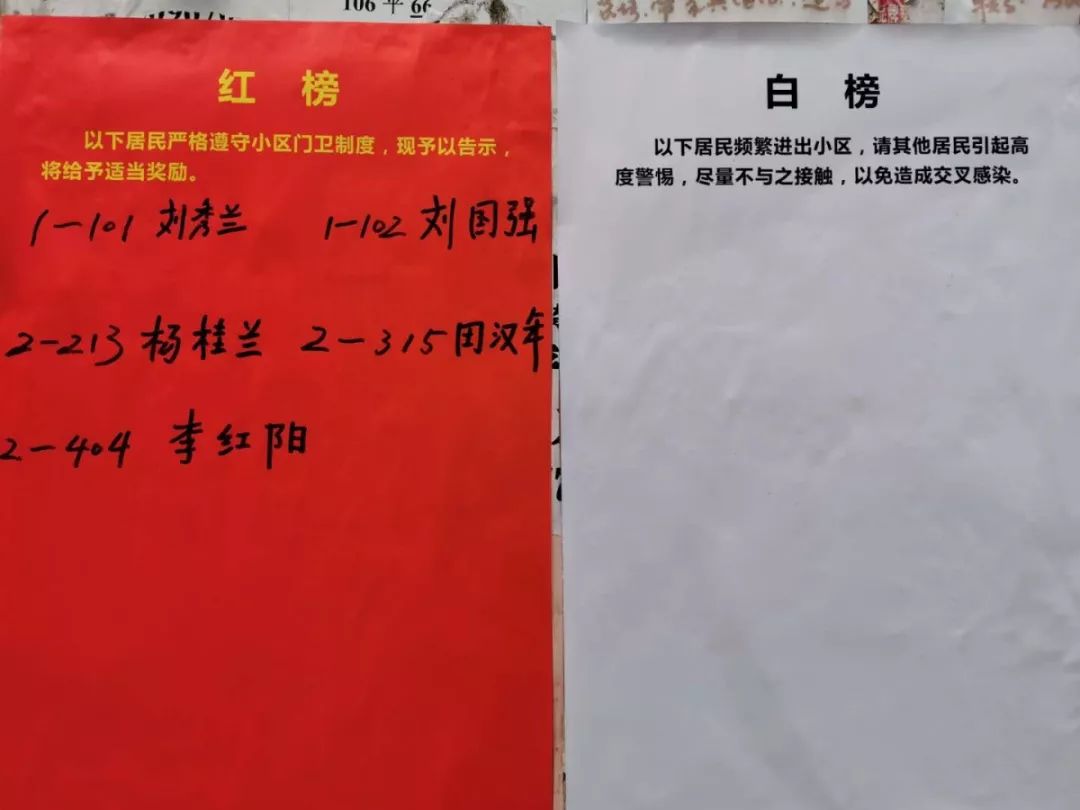 106 平 66
红 榜
以下居民严格遵守小区门卫制度，现予以告示，
将给予适当奖励。
1-101 刘秀兰 1-102 刘国强
2-213 杨桂兰 2-315 田汉年
2-404 李红阳
白 榜
以下居民频繁进出小区，请其他居民引起高
度警惕，尽量不与之接触，以免造成交叉感染。